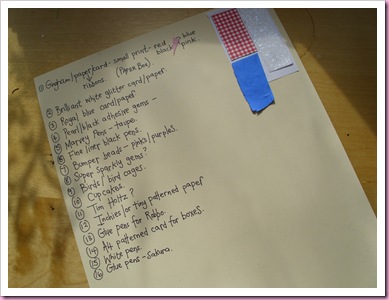 ① Gingham/paper card - small print - red blue
black pink.
ribbons (Paper Box)
② Brilliant White glitter card/paper
③ Royal blue card/paper
④ Pearl/black adhesive gems -
⑤ Marvey Pens - taupe.
⑥ Fine liner black pens.
⑦ Bumper beads - pinks/purples.
⑧ Super sparkly gems?
⑨ Birds/bird cages.
⑩ Cupcakes.
⑪ Tim Holtz?
⑫ Inchies/or tiny patterned paper
⑬ Glue pens for Robbo.
⑭ A4 patterned card for boxes.
⑮ White pens.
⑯ Glue pens - Sakura.